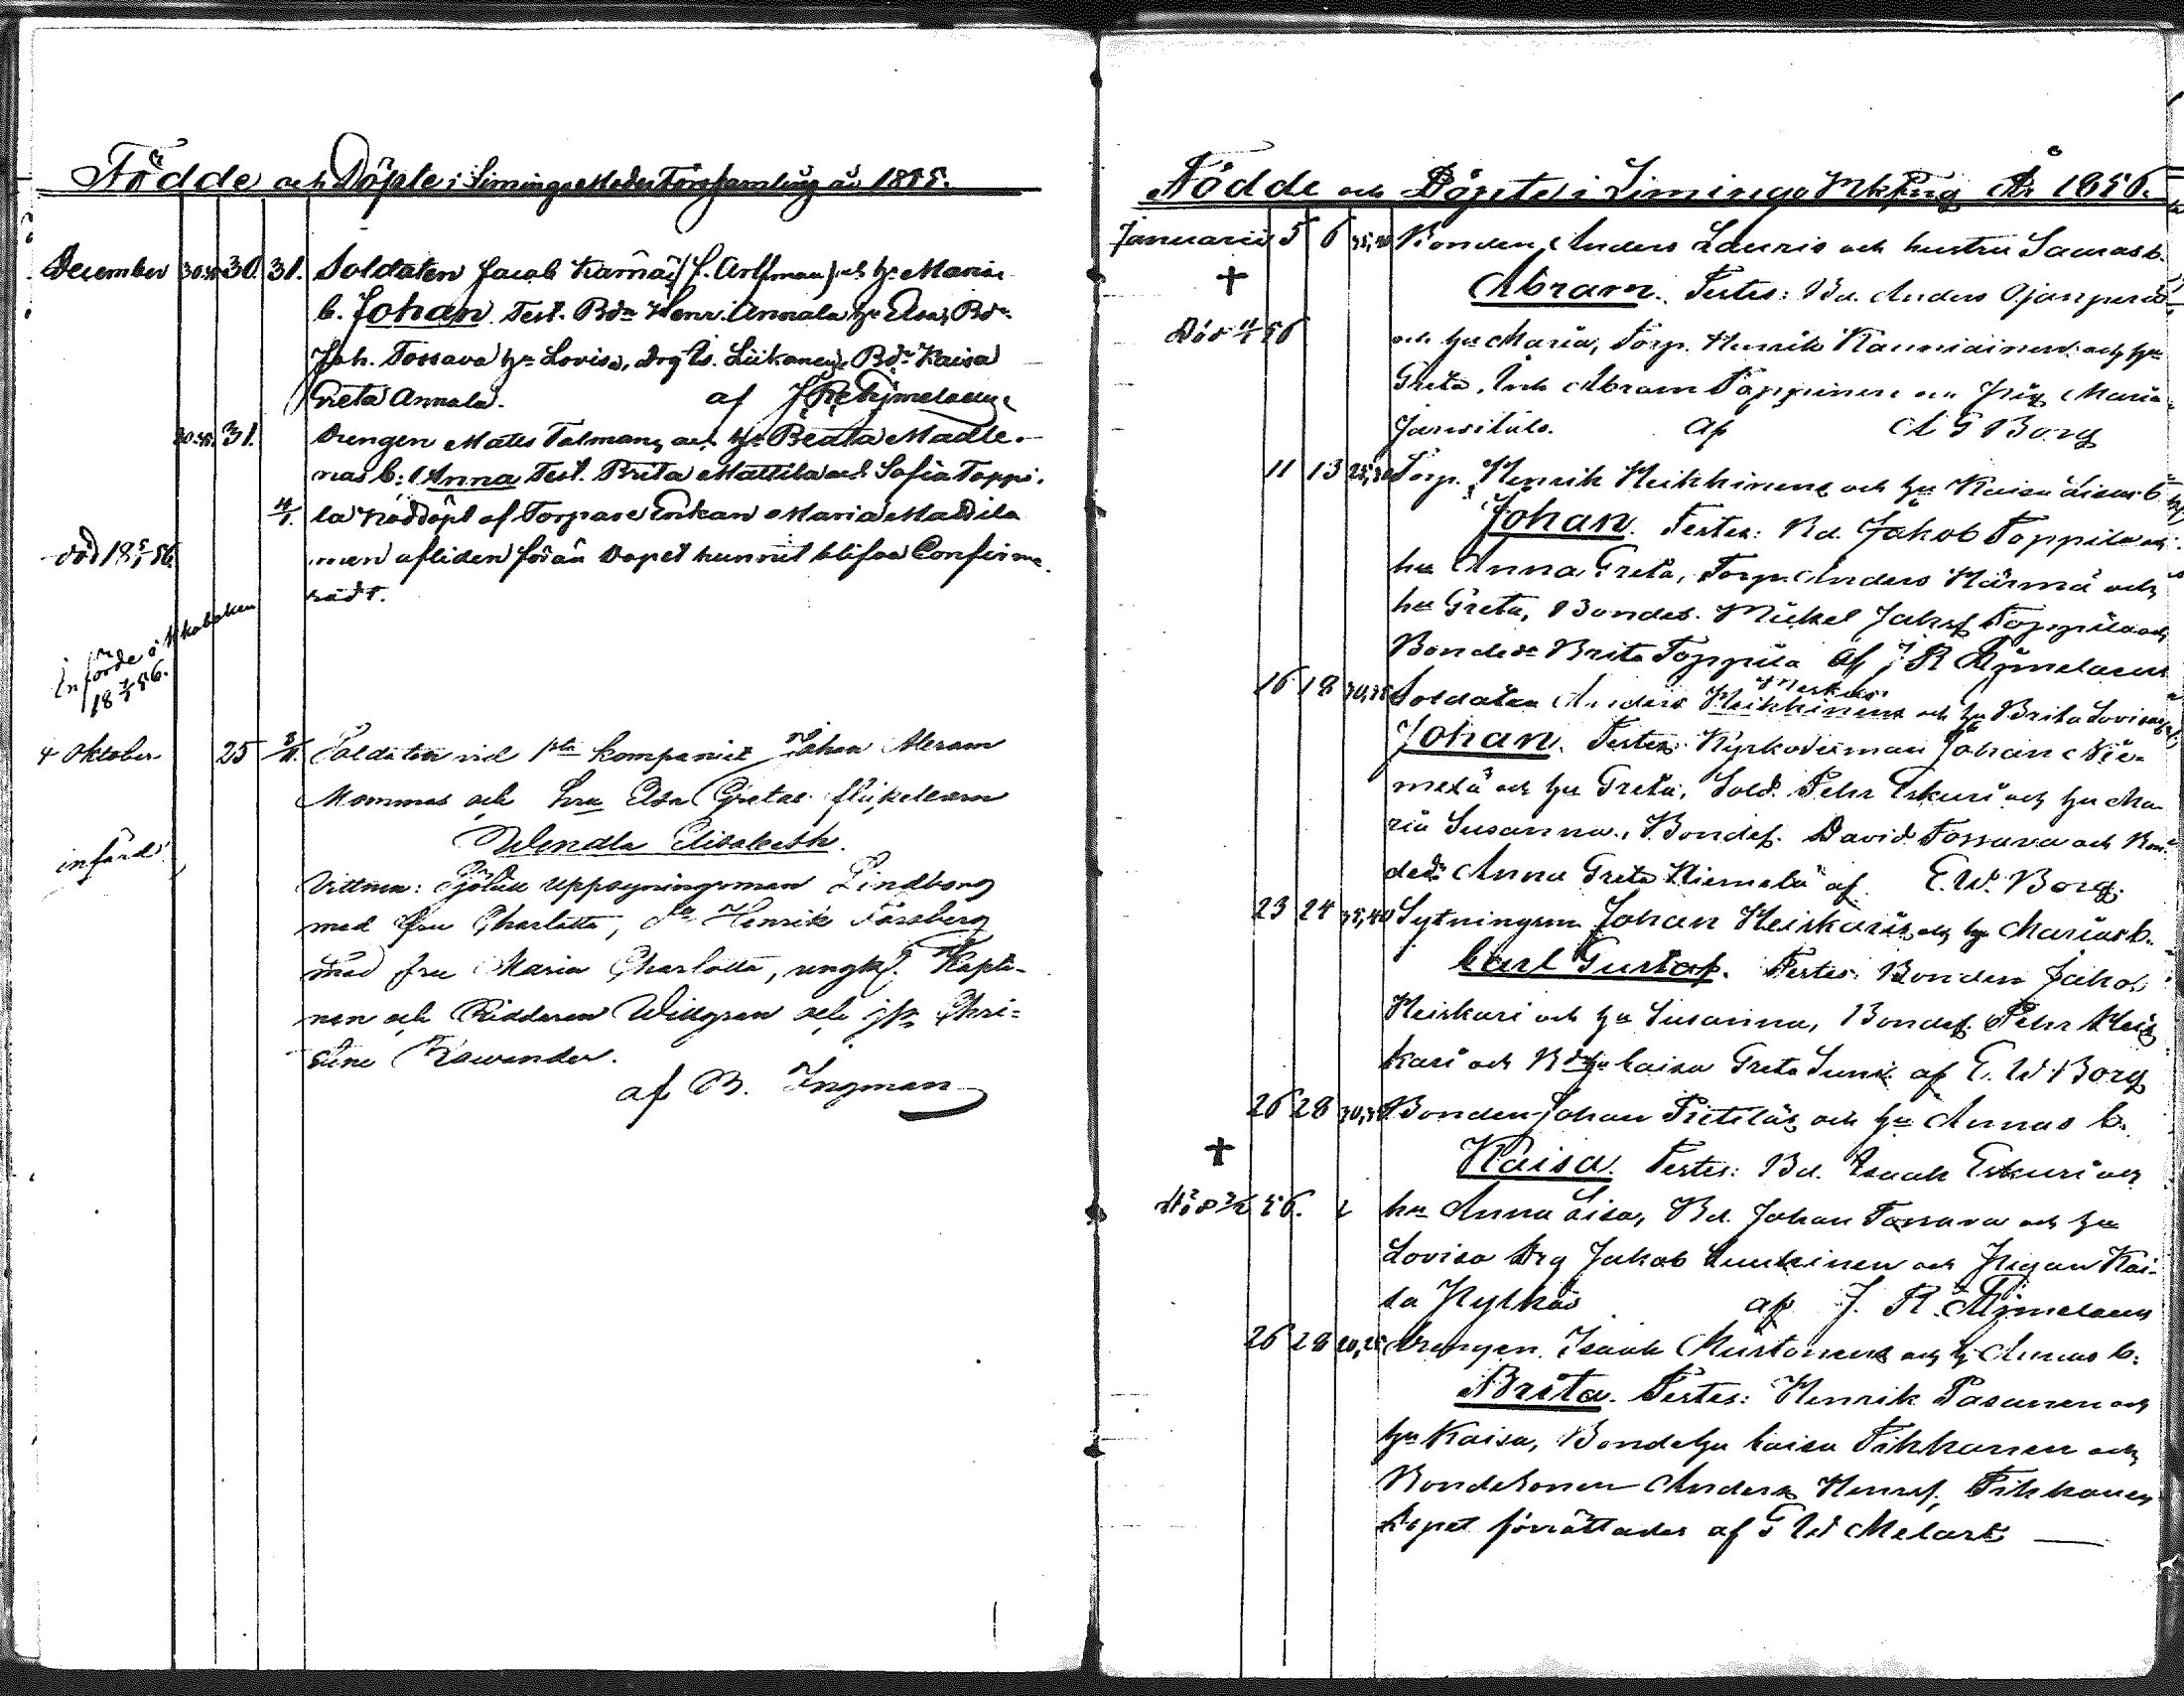 Födde och Döpte i Limingo Moder Församling år 1855.
December 30.35. 30. 31. Soldaten Jacob (f. ) och h: Marias
b. Johan. Test. Bdn Henr. Annala h: Elsa, Bdn
Joh. Tossava hu Lovisa, drg Is. Liikanen, Bdr Kaisa
Greta Annala. af J. R. Hjmelaeus
31. Drengen Matts Talmans och hu Beata Madle-
nas b: Anna Test. Brita Mattila och Sofia Toppi-
4/1. la nöddöpt af Torpare Enkan Maria Mattila
död 18 5/1 56. men afliden förän Dopet hunnit blifva Confirme
radt.
Införde å
18 56.
4 Oktober 25 Soldaten vid 1sta kompaniet Johan Abram
Mommas och hru Elsa Gretas flickebarn
Wendla Elisabeth.
införd
Vittnen: uppsyningsman Lindborg
med fru Charlotta, Henrik Forsberg
med fru Maria Charlotta, ungk. Kapte-
nen och Riddaren Willgren och jfr Chri-
stine
af B. Ingman
Födde och Döpte i Limingo År 1856.
Januarii 5 6 35,40 Bonden Anders Lauris och hustru Saaras b.
† Abram. Testes: Bd. Anders Ojanperä
Död 56 och hu Maria, Torp. Henrik Kauniainen och hu
Greta, Abram Toppinen och Pig. Maria
af A G Borg
11 13 25,30 Torp. Henrik Heikkinens och hu Kaisa Lisas b.
Johan. Testes: Bd. Jakob Toppila och
hu Anna Greta, Torp. Anders Härmä och
hu Greta, Bondes. Mickel Jakosf Toppila och
Bondedr Brita Toppila af J R Hjmelaeus
16 18 30,35 Soldaten Anders Heikkinens och hu Brita Lovisas b.
Johan. Testes: Kyrkovärman Johan Nie-
melä och hu Greta, Sold. Pehr Erkuri och hu Ma-
ria Susanna, Bondes. David Tossava och Bon-
dedr Anna Greta Niemelä af E. W. Borg.
23 24 35,40 Sytningsm. Johan Heiskaris och hu Marias b.
Carl Gustaf. Testes: Bonden Jakob
Heiskari och hu Susanna, Bondes. Pehr Heis
kari och Bdhu Caisa Greta Suni af E. W. Borg
26 28 30,35 Bonden Johan Pietiläs och hu Annas b.
† Kaisa. Testes: Bd. Isaak Erkuri och
död 56. hu Anna Lisa, Bd. Johan Tossava och hu
Lovisa Drg Jakob Luukinen och Pigan Kai-
sa Hylkäs af J. R. Hjmelaeus
26 28 20,25 Drengen Isaak Mustonens och h Annas b.
Brita. Testes: Henrik Pasanen och
hu Kaisa, Bondehu Caisa Pikkanen och
Bondesonen Anders Henrsf. Pikkanen
Dopet förrättades af G W Melart